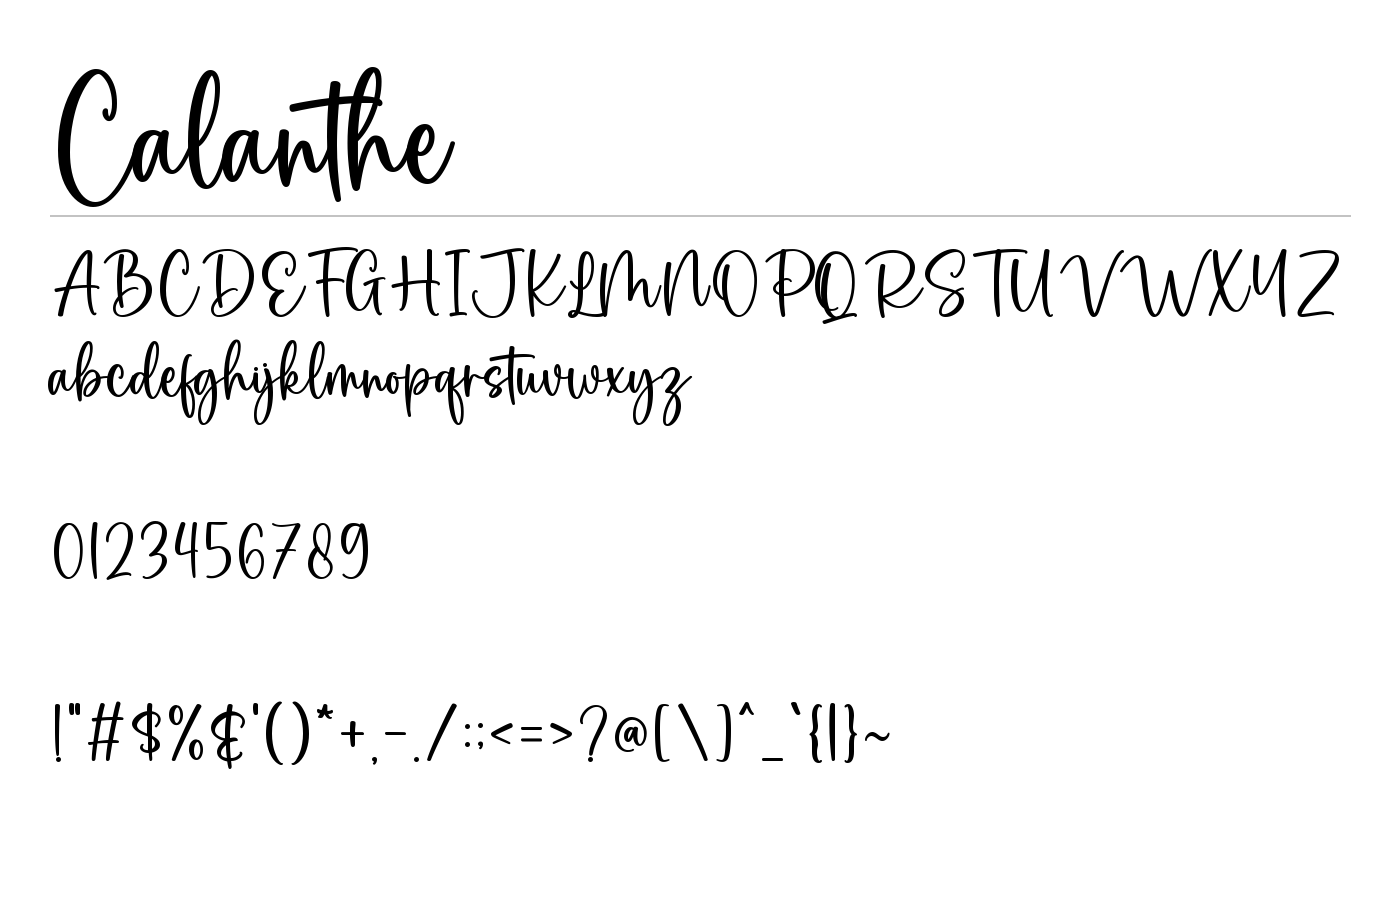 Calanthe
ABCDEFGHIJKLMNOPQRSTUVWXYZ
abcdefghijklmnopqrstuvwxyz
0123456789
!"#$%&'()*+,-./:;<=>?@[\]^_`{|}~